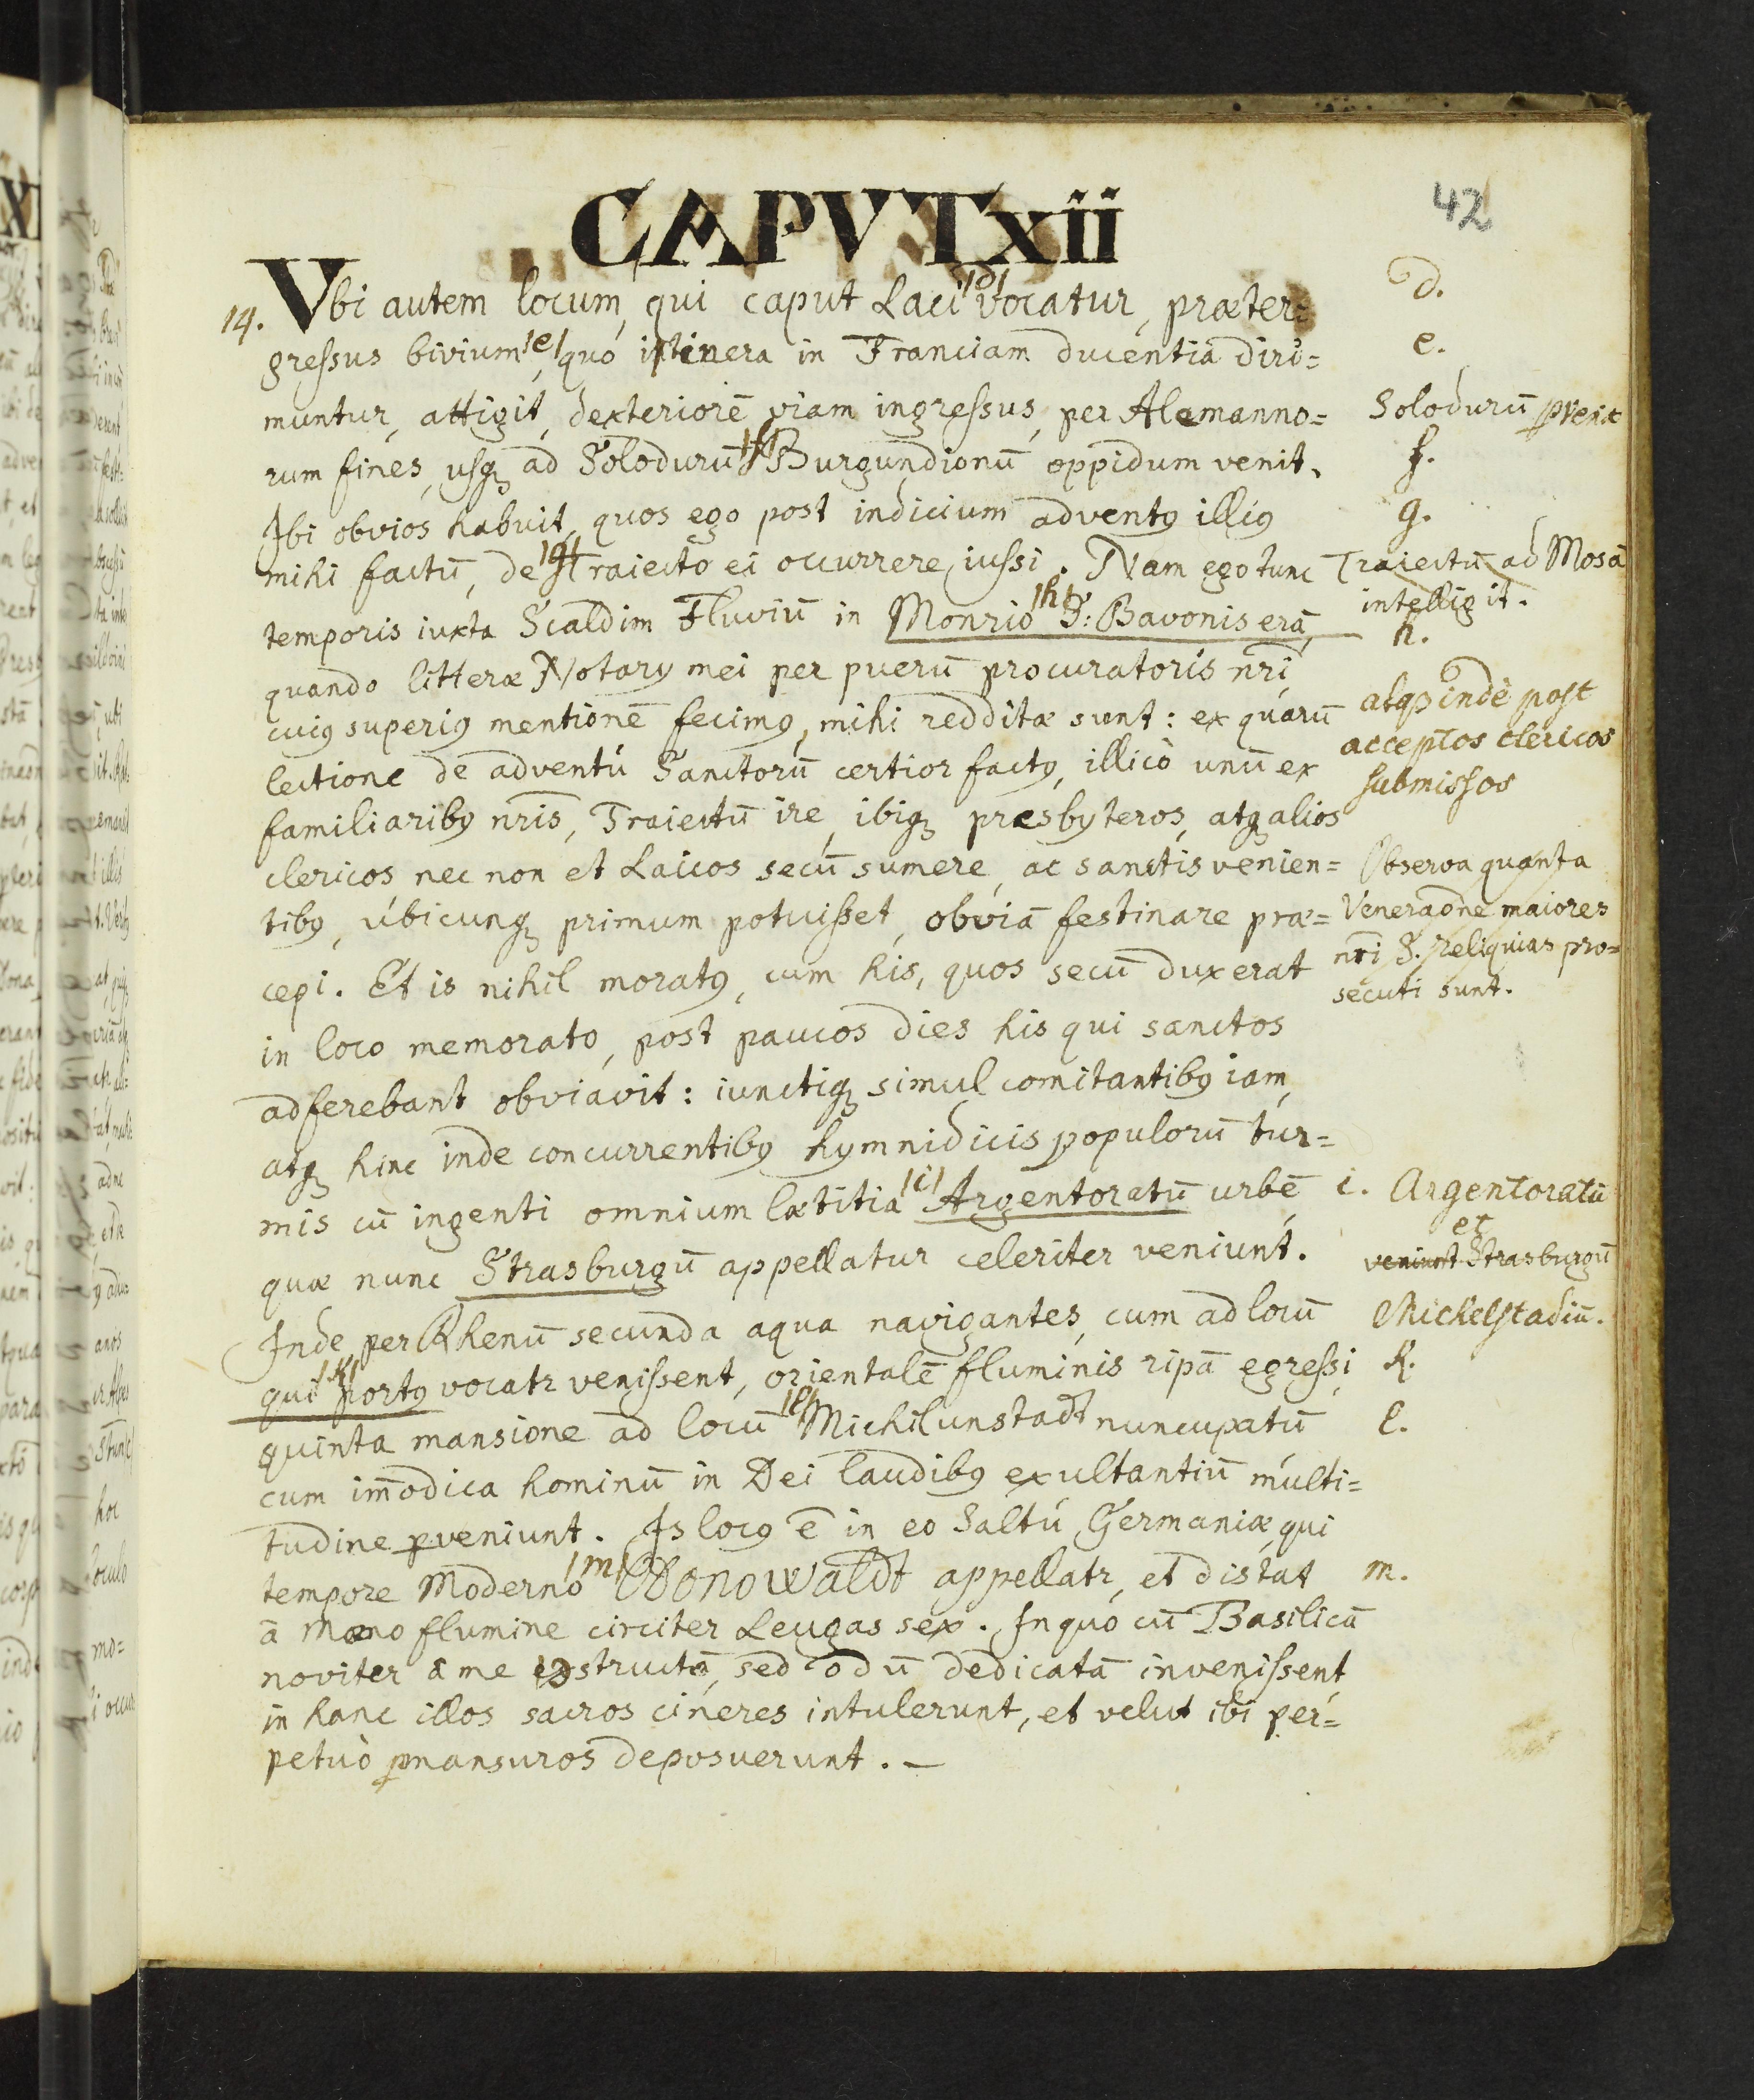 42
CAPVT xii
14. Vbi autem locum, qui caput Laci /d/ vocatur, præter=
gressus bivium /e/, quo itinera in Franciam ducentia diri=
muntur, attigit, dexteriorē viam ingressus, per Alemanno=
rum fines, usq; ad Solodurū /f/ Burgundionū oppidum venit.
Ibi obvios habuit, quos ego post indicium adventꝰ illiꝰ
mihi factū, de /g/ Traiecto ei occurrere iussi. Nam ego tunc
temporis iuxta Scaldim Fluviū in Monrio /h/ S: Bavonis erā,
quando litteræ Notarij mei per puerū procuratoris nr̄i,
cuiꝰ superiꝰ mentionē fecimꝰ, mihi redditæ sunt: ex quarū
lectione de adventú Sanctorū certior factꝰ, illicò unū ex
familiaribꝰ nr̄is, Traiectū ire, ibiq; presbyteros, atq; alios
clericos nec non et Laicos secū sumere, ac sanctis venien=
tibꝰ, úbicunq; primum potuisset, obviā festinare præ=
cepi. Et is nihil moratꝰ, cum his, quos secū duxerat
in loco memorato, post paucos dies his qui sanctos
adferebant obviavit: iunctiq; simul comitantibꝰ iam,
atq; hinc inde concurrentibꝰ hymnidicis populorū túr=
mis cū ingenti omnium lætitia /i/ Argentoratū urbē,
quæ nunc Strasburgū appellatur celeriter veniunt.
Inde per Rhenū secunda aqua navigantes, cum ad locū
qui /k/ portꝰ vocatr venissent, orientalē fluminis ripā egressi,
quinta mansione ad locū /l/ Michilunstadt nuncupatū
cum im̄odica hominū in Dei laudibꝰ exultantiū múlti=
tudine ꝑveniunt. Is locꝰ ē in eo Saltú Germaniæ, qui
tempore Moderno /m/ Odonowaldt appellatr, et distat
ā Mæno flumine circiter Leugas sex. In quo cū Basilicā
noviter ā me exstructā, sed ... dedicatā invenissent
in hanc illos sacros cineres intulerunt, et velut ibi per=
petuò ꝑmansuros deposuerunt. —
d.
e.
Solodurū ꝑvenit
f.
g.
Traiectū ad Mosā
intelligit.
h.
atq; inde post
acceptos clericos
submissos
Observa quanta
Veneraōne maiores
nr̄i S. reliquias pro=
secuti sunt.
i. Argentoratū
et
veniunt Strasburgū
Michelstadiū.
k.
l.
m.